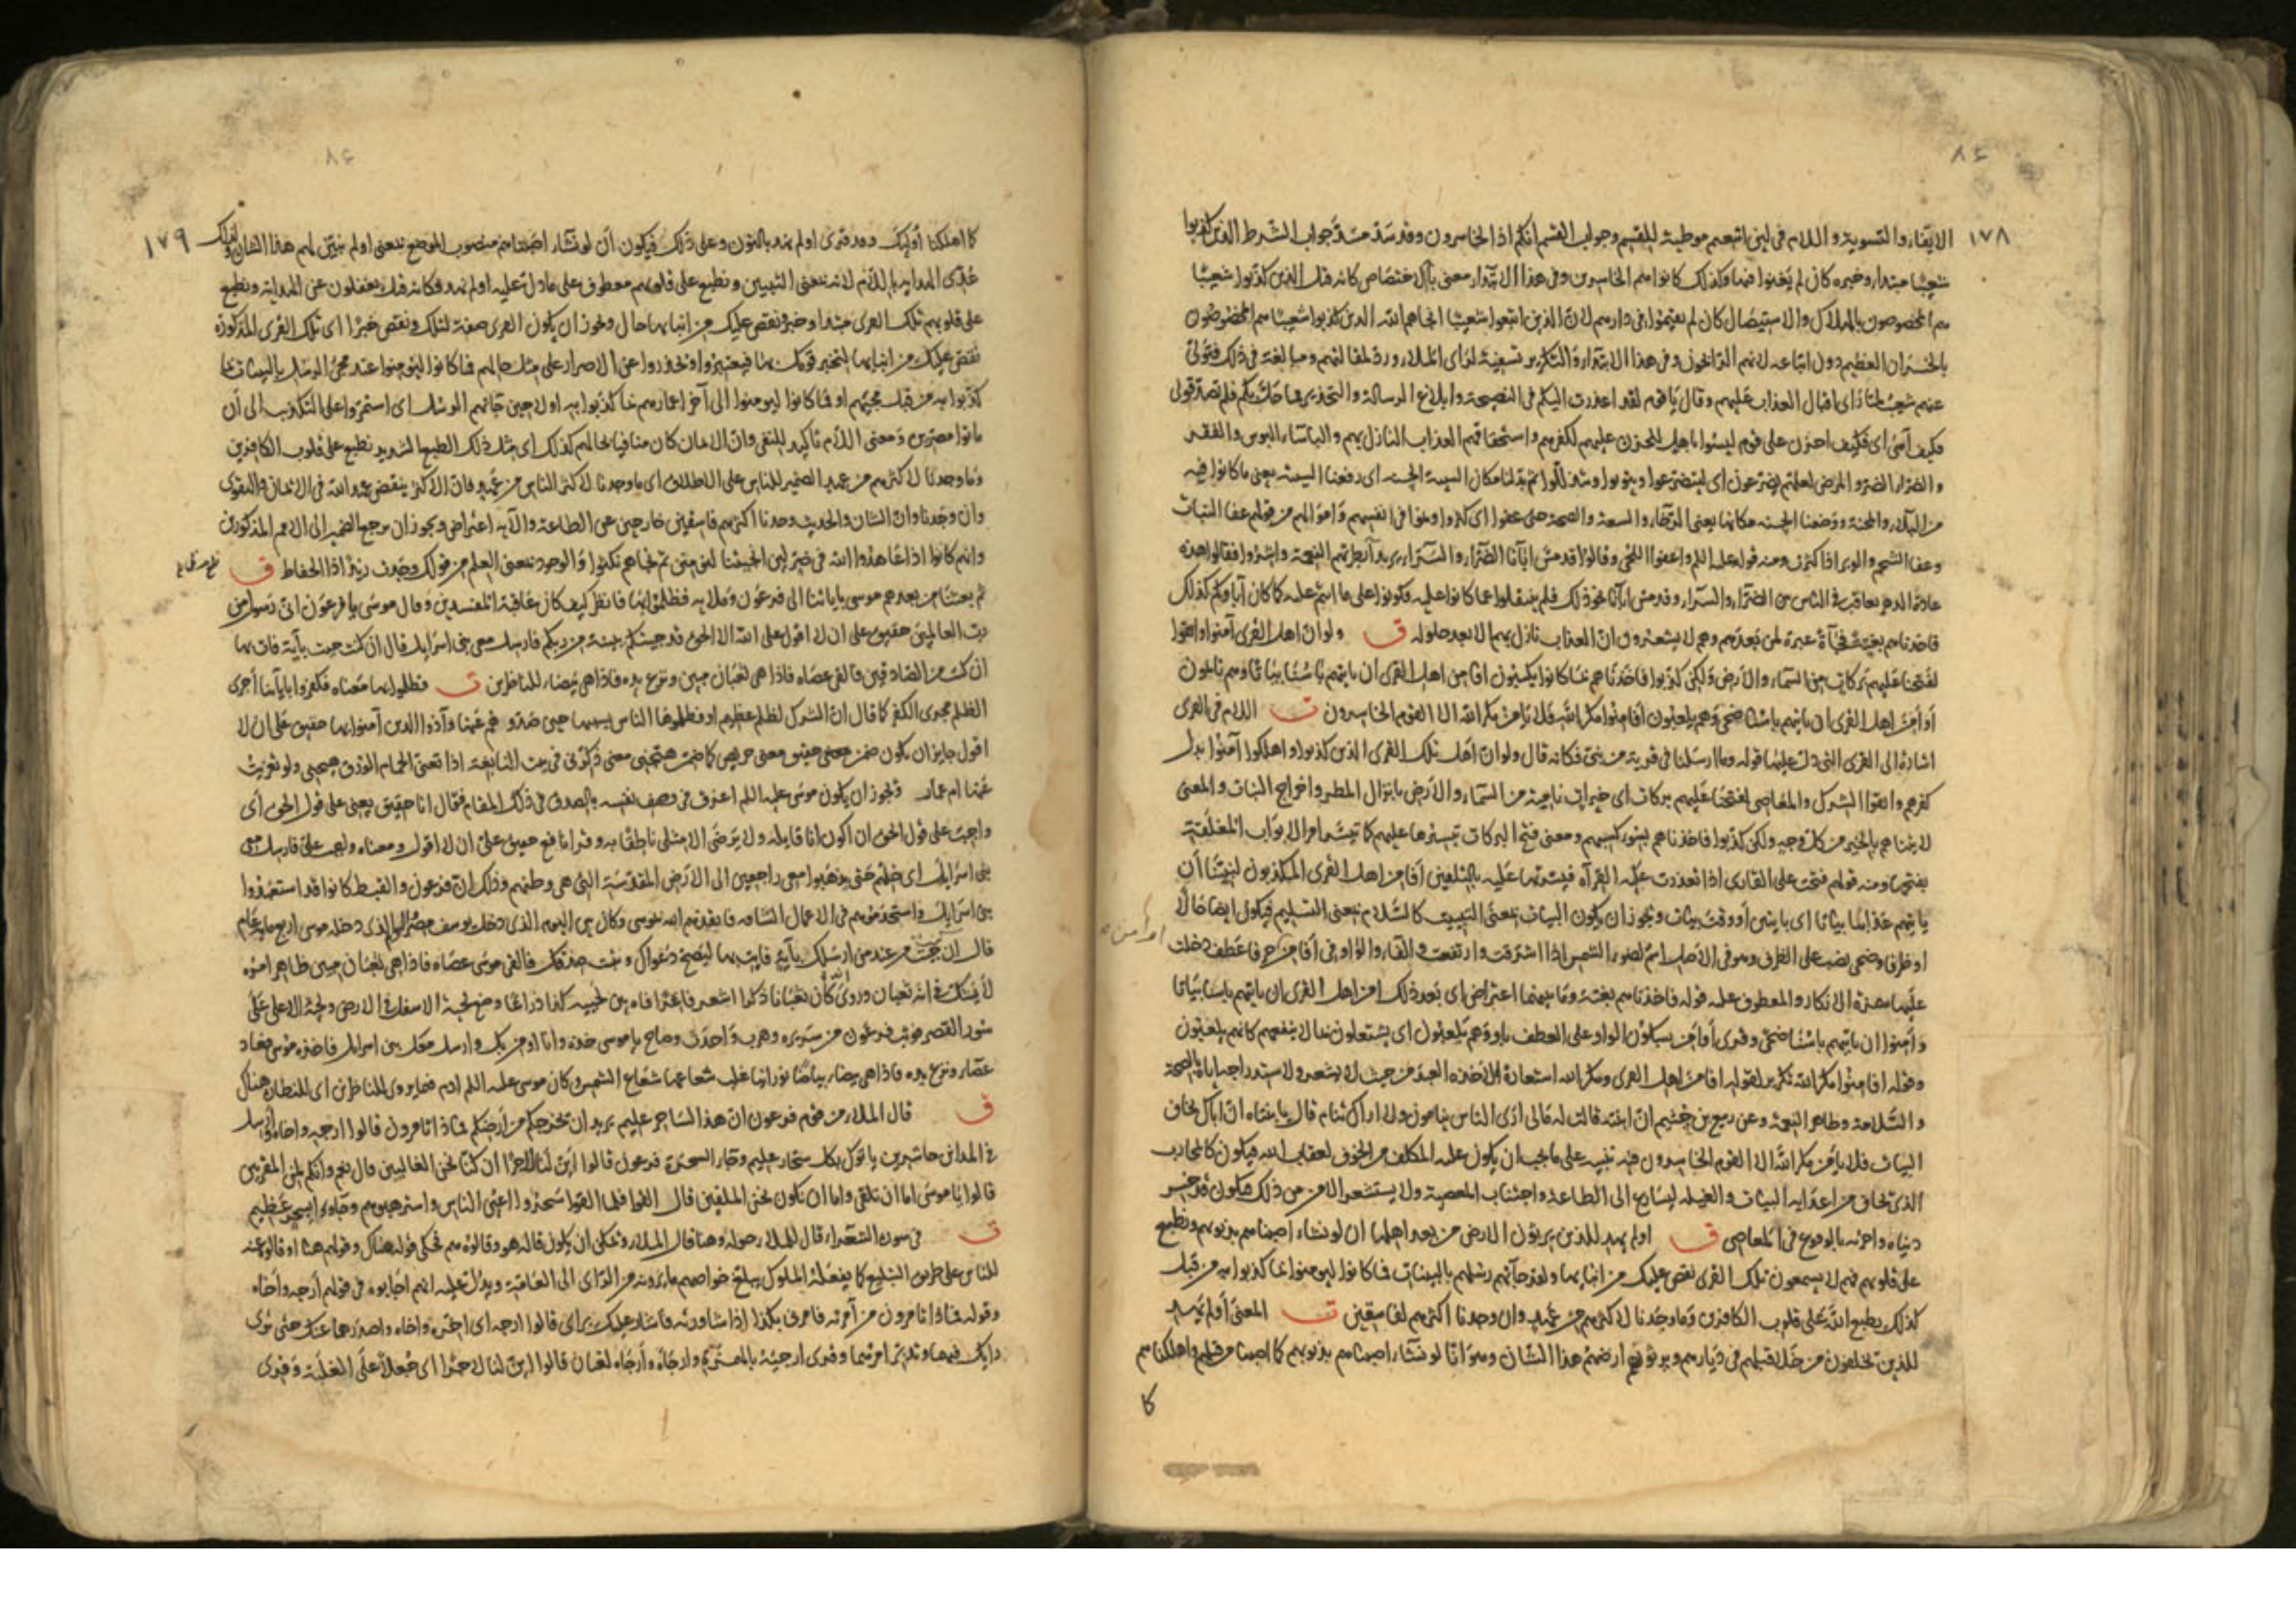 ١٧٨
الايفاء والتسوية واللام فى لئن اتبعتم موطية للقسم وجواب القسم انكم اذا لخاسرون وقد سد مسد جواب الشرط الذين كذبوا
شعيبا مبتدا وخبره كان لم يغنوا فيها وكذلك كانوا هم الخاسرين وفى هذا الابتداء معنى الاختصاص كانه قيل الذين كذبوا شعيبا
هم المخصوصون بالهلاك والاستيصال كان لم يقيموا فى دارهم لان الذين اتبعوا شعيبا انجاهم الله الذين كذبوا شعيبا هم المخصوصون
بالخسران العظيم دون اتباعه لانهم الرابحون وفى هذا الابتداء والتكرير تسفيه لراى الملاء ورد لمقالتهم ومبالغة فى ذلك فتولى
عنهم شعيب لما راى اقبال العذاب عليهم وقال يا قوم لقد اعذرت اليكم فى النصيحة وابلاغ الرسالة والتحذير مما حل بكم فلم تصدقوا قولى
فكيف آسى اى فكيف احزن على قوم ليسوا باهل للحزن عليهم لكفرهم واستحقاقهم العذاب النازل بهم والباساء البوس والفقر
والضراء الضر والمرض لعلهم يضرعون اى ليتضرعوا ويتوبوا ويتذللوا ثم بدلنا مكان السيئة الحسنة اى رفعنا السيئة يعنى ما كانوا فيه
من البلاء والمحنة ووضعنا الحسنة مكانها يعنى الرخاء والسعة والصحة حتى عفوا اى كثروا ونموا فى انفسهم واموالهم من قولهم عفا النبات
وعفا الشحم والوبر اذا كثرت ومنه قوله عليه السلم واعفوا اللحى وقالوا قد مس ابآنا الضراء والسراء يريد ابطرتهم النعمة واشروا فقالوا هذه
عادة الدهر يعاقب فى الناس بين الضراء والسراء وقد مس ابآنا نحو ذلك فلم ينتقلوا عما كانوا عليه فكونوا على ما انتم عليه كما كان آباوكم كذلك
فاخذناهم بغتة فجآة عبرة لمن بعدهم وهم لا يشعرون ان العذاب نازل بهم الا بعد حلوله ق ولو ان اهل القرى آمنوا واتقوا
لفتحنا عليهم بركات من السماء والارض ولكن كذبوا فاخذناهم بما كانوا يكسبون افامن اهل القرى ان ياتيهم باسنا بياتا وهم نايمون
اوامن اهل القرى ان ياتيهم باسنا ضحى وهم يلعبون افامنوا مكر الله فلا يامن مكر الله الا القوم الخاسرون ت اللام فى القرى
اشارة الى القرى التى دل عليها قوله وما ارسلنا فى قرية من نبى فكانه قال ولو ان اهل تلك القرى الذين كذبوا واهلكوا آمنوا بدل
كفرهم واتقوا الشرك والمعاصى لفتحنا عليهم بركات اى خيرات نامية من السماء والارض بانزال المطر واخراج النبات والمعنى
لاتيناهم بالخير من كل وجه ولكن كذبوا فاخذناهم بسوء كسبهم ومعنى فتح البركات تيسيرها عليهم كما تيسر امر الابواب المغلقة
بفتحها ومنه قولهم فتحت على القارى اذا تعذرت عليه القرآة فيسرتها عليه بالتلقين افامن اهل القرى المكذبون لنبينا ان
ياتيهم عذابنا بياتا اى بايتين او وقت بيات ويجوز ان يكون البيات بمعنى التبييت كالسلام بمعنى التسليم فيكون ايضا حالا
او ظرفا وضحى نصب على الظرف وهو فى الاصل اسم لضوء الشمس اذا اشرقت وارتفعت والفاء والواو فى افامن حرفا عطف دخلت
عليهما همزة الانكار والمعطوف عليه قوله فاخذناهم بغتة وما بينهما اعتراض اى بعد ذلك امن اهل القرى ان ياتيهم باسنا بياتا
وامنوا ان ياتيهم باسنا ضحى وقرى اوامن بسكون الواو على العطف باو وهم يلعبون اى يشتغلون بما لا ينفعهم كانهم يلعبون
وقوله افامنوا مكر الله تكرير لقوله افامن اهل القرى ومكر الله استعارة لاخذه العبد من حيث لا يشعر ولاستدراجه اياه بالصحة
والسلامة وظاهر النعمة وعن ربيع بن خثيم ان ابنته قالت له مالى ارى الناس ينامون ولا اراك تنام قال يا بنتاه ان اباك يخاف
البيات فلا يامن مكر الله الا القوم الخاسرون فيه تنبيه على ما يجب ان يكون عليه المكلف من الخوف لعقاب الله فيكون كالمحارب
الذى يخاف من اعدايه البيات والغيلة ليسارع الى الطاعة واجتناب المعصية ولا يستشعر الامن من ذلك فيكون قد خسر
دنياه واخرته بالوقوع فى المعاصى ق اولم يهد للذين يرثون الارض من بعد اهلها ان لو نشاء اصبناهم بذنوبهم ونطبع
على قلوبهم فهم لا يسمعون تلك القرى نقص عليك من انبايها ولقد جآتهم رسلهم بالبينات فما كانوا ليومنوا بما كذبوا به من قبل
كذلك يطبع الله على قلوب الكافرين وما وجدنا لاكثرهم من عهد وان وجدنا اكثرهم لفاسقين ت المعنى اولم يهد
للذين يخلفون من خلا قبلهم فى ديارهم ويرثون ارضهم هذا الشان وهو انا لو نشاء اصبناهم بذنوبهم كما اصبنا من قبلهم واهلكناهم
كما
١٧٩
كما اهلكنا اوليك وقد قرى اولم نهد بالنون وعلى ذلك فيكون ان لو نشاء اصبناهم منصوب الموضع بمعنى اولم نبين لهم هذا الشان ولذلك
عدى الهداية باللام لانه بمعنى التبيين ونطبع على قلوبهم معطوف على ما دل عليه اولم نهد فكانه قيل يغفلون عن الهداية ونطبع
على قلوبهم تلك القرى مبتدا وخبر ونقص عليك من انبايها حال ويجوز ان يكون القرى صفة لتلك ونقص خبرا اى تلك القرى المذكورة
نقص عليك من انبايها لتخبر قومك بها فيعتبروا ويحذروا عن الاصرار على مثل حالهم فما كانوا ليومنوا عند مجئ الرسل بالبينات بما
كذبوا به من قبل مجيهم او فما كانوا ليومنوا الى آخر اعمارهم بما كذبوا به اولا حين جآتهم الرسل اى استمروا على التكذيب الى ان
ماتوا مصرين ومعنى اللام تاكيد للنفى وان الايمان كان منافيا لحالهم كذلك اى مثل ذلك الطبع الشديد نطبع على قلوب الكافرين
وما وجدنا لاكثرهم من عهد الضمير للناس على الاطلاق اى ما وجدنا لاكثر الناس من عهد فان الاكثر ينقض عهد الله فى الايمان والتقوى
وان وجدنا وان الشان والحديث وجدنا اكثرهم فاسقين خارجين عن الطاعة والآية اعتراض ويجوز ان يرجع الضمير الى الامم المذكورين
وانهم كانوا اذا عاهدوا الله فى ضر لئن انجيتنا لنومنن ثم نجاهم نكثوا والوجود بمعنى العلم من قولك وجدت زيدا ذا الحفاظ ق
ثم بعثنا من بعدهم موسى باياتنا الى فرعون وملايه فظلموا بها فانظر كيف كان عاقبة المفسدين وقال موسى يا فرعون انى رسول من
رب العالمين حقيق على ان لا اقول على الله الا الحق قد جيتكم ببينة من ربكم فارسل معى بنى اسرايل قال ان كنت جيت بآية فات بها
ان كنت من الصادقين فالقى عصاه فاذا هى ثعبان مبين ونزع يده فاذا هى بيضاء للناظرين ت فظلموا بها معناه فكفروا باياتنا اجرى
الظلم مجرى الكفر كما قال ان الشرك لظلم عظيم او فظلموا الناس بسببها حين صدوهم عنها وآذوا الذين آمنوا بها حقيق على ان لا
اقول جايز ان يكون ضمن حقيق معنى حريص كما ضمن هيجنى معنى ذكرنى فى بيت النابغة اذا تغنى الحمام الورق هيجنى ولو تعزيت
عنها ام عمار ويجوز ان يكون موسى عليه السلم اعرق فى وصف نفسه بالصدق فى ذلك المقام فقال انا حقيق يعنى على قول الحق اى
واجب على قول الحق ان اكون انا قايله ولا يرضى الا مثلى ناطقا به وقرا نافع حقيق على ان لا اقول ومعناه واجب على فارسل معى
بنى اسرايل اى خلهم حتى يذهبوا معى راجعين الى الارض المقدسة التى هى وطنهم وذلك ان فرعون والقبط كانوا قد استعبدوا
بنى اسرايل واستخدموهم فى الاعمال الشاقة فانقذهم الله بموسى وكان بين اليوم الذى دخل يوسف مصر واليوم الذى دخله موسى اربع ماية عام
قال ان كنت جيت من عند من ارسلك بآية فات بها ليصح دعواك ويثبت صدقك فالقى موسى عصاه فاذا هى ثعبان مبين ظاهر امره
لا يشك فى انه ثعبان وروى انه كان ثعبانا ذكرا اشعر فاغرا فاه بين لحييه كذا ذراعا وضع لحيه الاسفل فى الارض ولحيه الاعلى على
سور القصر فوثب فرعون من سريره وهرب واحدث وصاح يا موسى خذه وانا اومن بك وارسل معك بنى اسرايل فاخذه موسى فعاد
عصا ونزع يده فاذا هى بيضاء بياضا نورانيا غلب شعاعها شعاع الشمس وكان موسى عليه السلم ادم فيما يروى للناظرين اى للنظار هناك
ق قال الملاء من قوم فرعون ان هذا لساحر عليم يريد ان يخرجكم من ارضكم فماذا تامرون قالوا ارجه واخاه وارسل
فى المداين حاشرين ياتوك بكل سحار عليم وجاء السحرة فرعون قالوا اين لنا لاجرا ان كنا نحن الغالبين قال نعم وانكم لمن المقربين
قالوا يا موسى اما ان تلقى واما ان نكون نحن الملقين قال القوا فلما القوا سحروا اعين الناس واسترهبوهم وجاوا بسحر عظيم
ت فى سورة الشعراء قال للملاء حوله وهنا قال الملاء ويمكن ان يكون قاله هو وقالوه هم فحكى قوله هناك وقولهم هنا او قالوه عنه
للناس على طريق التبليغ كما يفعله الملوك يبلغ خواصهم ما يرونه من الراى الى العامة ويدل عليه انهم اجابوه فى قولهم ارجه واخاه
وقوله فماذا تامرون من آمرته فامرنى بكذا اذا شاورته فاشار عليك براى قالوا ارجه اى اخره واخاه واصدرهما عنك حتى ترى
رايك فيهما وتدبر امرهما وقرى ارجئه بالهمزة وارجه وارجاه لغتان قالوا اين لنا لاجرا اى جعلا على الغلبة وقرى